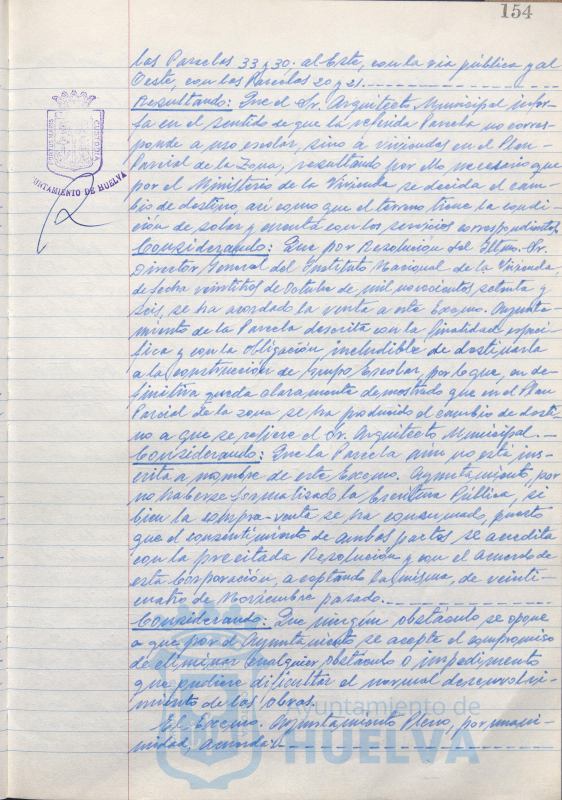 154
las Parcelas 33 y 30. al Este, con la via pública y al
Oeste, con las Parcelas 20 y 21.
Resultando: Que el Sr. Arquitecto Municipal infor-
ma en el sentido de que la referida Parcela no corres-
ponde a uso escolar, sino a viviendas en el Plan
Parcial de la Zona, resultando por ello necesario que
por el Ministerio de la Vivienda se decida el cam-
bio de destino, asi como que el terreno tiene la condi-
ción de solar y cuenta con los servicios correspondientes
Considerando: Que por Resolución del Iltmo. Sr.
Director General del Instituto Nacional de la Vivienda
de fecha veintitres de Octubre de mil novecientos setenta y
seis, se ha acordado la venta a este Excmo. Ayunta-
miento de la Parcela descrita con la finalidad especi-
fica y con la obligación ineludible de destinarla
a la construcción de Grupo Escolar, por lo que, en de-
finitiva queda claramente demostrado que en el Plan
Parcial de la zona se ha producido el cambio de desti-
no a que se refiere el Sr. Arquitecto Municipal.
Considerando: Que la Parcela aun no está ins-
crita a nombre de este Excmo. Ayuntamiento, por
no haberse formalizado la Escritura Pública, si
bien la compra-venta se ha consumado, puesto
que el consentimiento de ambas partes se acredita
con la precitada Resolución y con el Acuerdo de
esta Corporación, aceptando la misma, de veinti-
cuatro de Noviembre pasado.
Considerando: Que ningún obstáculo se opone
a que por el Ayuntamiento se acepte el compromiso
de eliminar cualquier obstáculo o impedimento
que pudiere dificultar el normal desenvolvi-
miento de las obras.
El Excmo. Ayuntamiento Pleno, por unani-
midad, acuerda:
AYUNTAMIENTO DE HUELVA
Ayuntamiento de
HUELVA